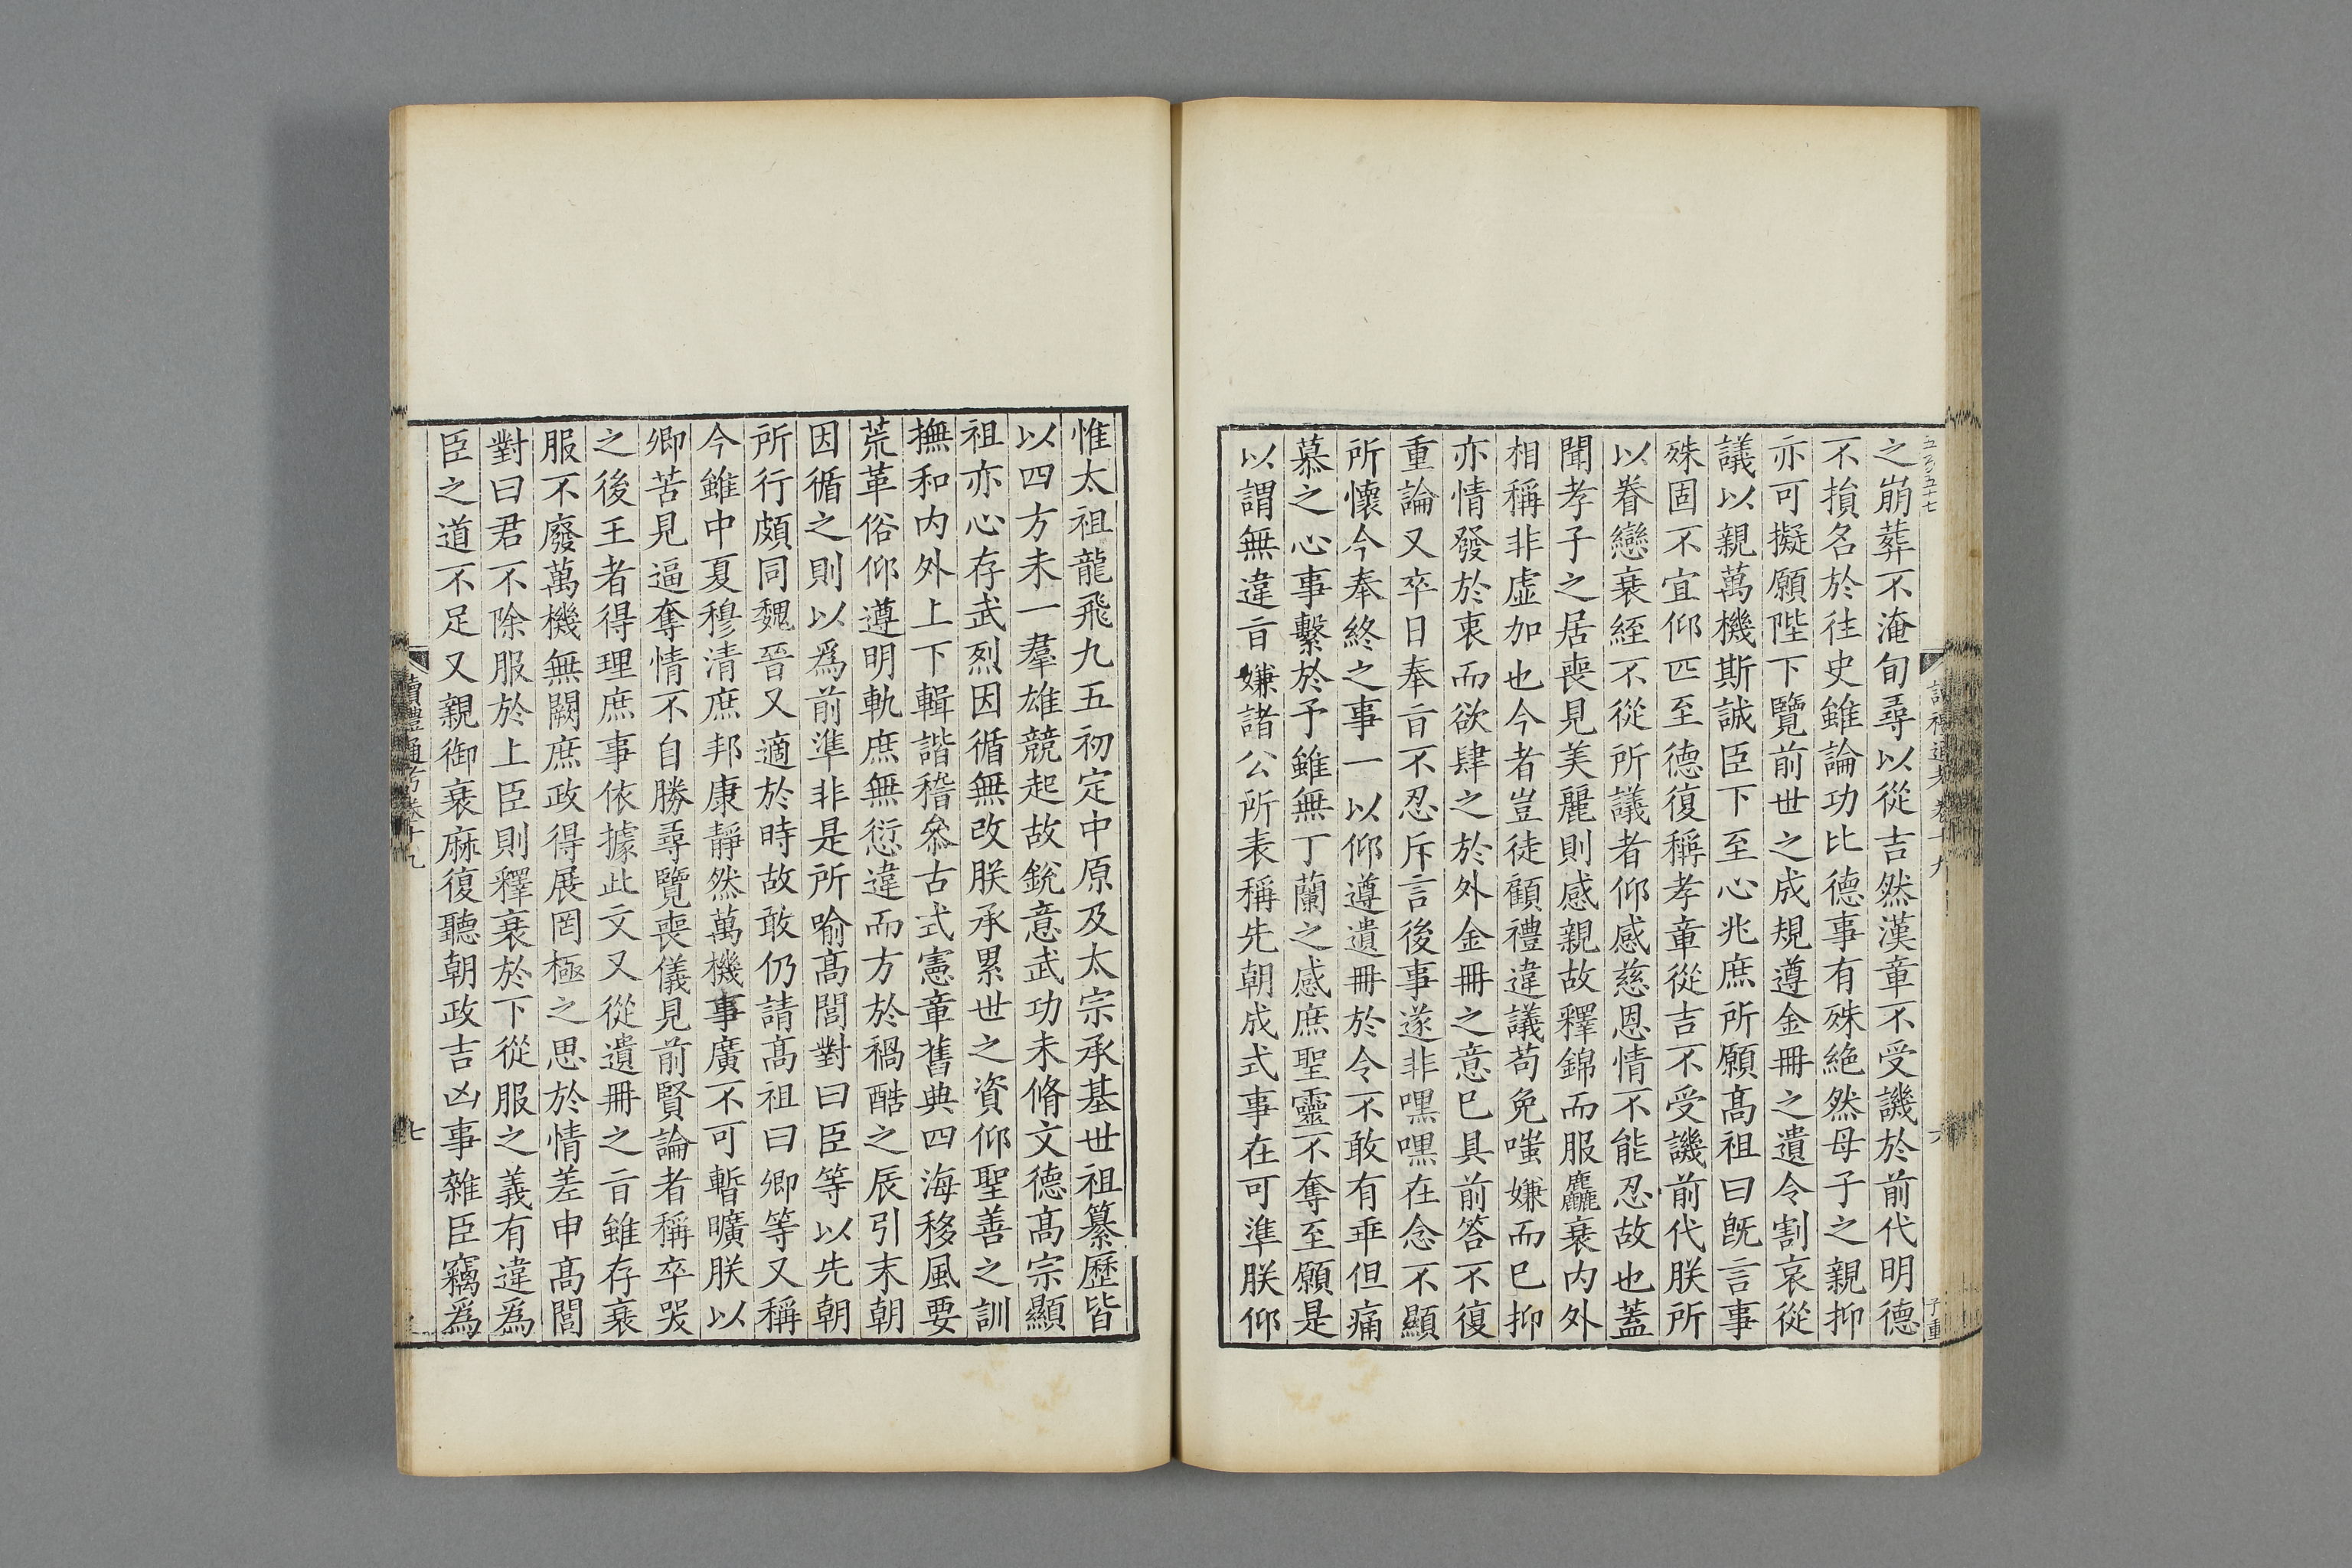 之崩葬不淹旬尋以從吉然漢章不受譏於前代明德
不損名於往史雖論功比德事有殊絶然母子之親抑
亦可擬願陛下覽前世之成規遵金冊之遺令割哀從
議以親萬機斯誠臣下至心兆庶所願髙祖曰旣言事
殊固不宜仰匹至德復稱孝章從吉不受譏前代朕所
以眷戀衰絰不從所議者仰感慈恩情不能忍故也蓋
聞孝子之居喪見美麗則感親故釋錦而服麤衰内外
相稱非虛加也今者豈徒顧禮違議苟免嗤嫌而巳抑
亦情發於衷而欲肆之於外金冊之意巳具前答不復
重論又卒日奉㫖不忍斥言後事遂非嘿嘿在念不顯
所懷今奉終之事一以仰遵遺冊於令不敢有乖但痛
慕之心事繫於予雖無丁蘭之感庶聖靈不奪至願是
以謂無違㫖嫌諸公所表稱先朝成式事在可準朕仰
讀禮通考卷十九
六
惟太祖龍飛九五初定中原及太宗承基世祖纂歷皆
以四方未一羣雄競起故銳意武功未脩文德髙宗顯
祖亦心存武烈因循無改朕承累世之資仰聖善之訓
撫和内外上下輯諧稽叅古式憲章舊典四海移風要
荒革俗仰遵明軌庶無愆違而方於禍酷之辰引末朝
因循之則以爲前準非是所喻髙閭對曰臣等以先朝
所行頗同魏晉又適於時故敢仍請髙祖曰卿等又稱
今雖中夏穆清庶邦康靜然萬機事廣不可暫曠朕以
卿苦見逼奪情不自勝尋覽喪儀見前賢論者稱卒哭
之後王者得理庶事依據此文又從遺冊之㫖雖存衰
服不廢萬機無闕庶政得展罔極之思於情差申髙閭
對曰君不除服於上臣則釋衰於下從服之義有違爲
臣之道不足又親御衰麻復聽朝政吉凶事雜臣竊爲
讀禮通考卷十九
七